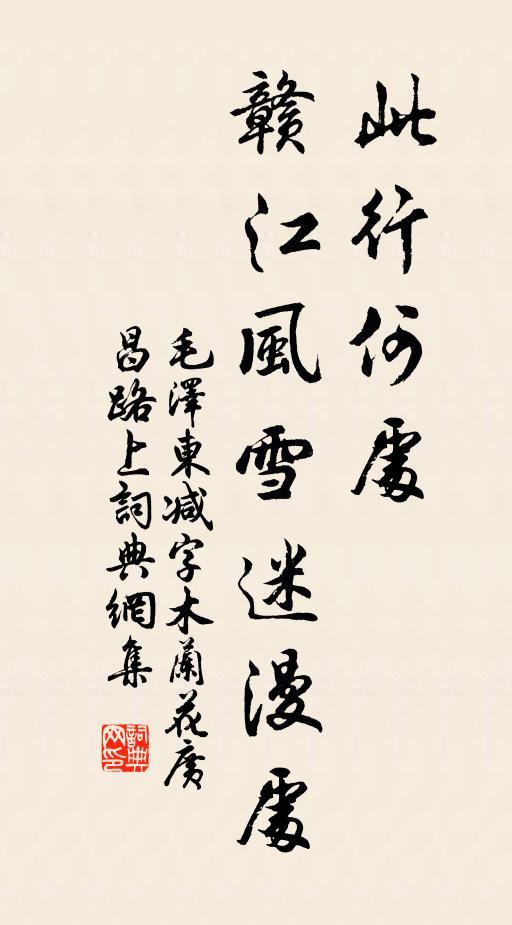 此行何處
贛江風雪迷漫處
毛澤東减字木蘭花廣
昌路上詞典網集
詞典
网印